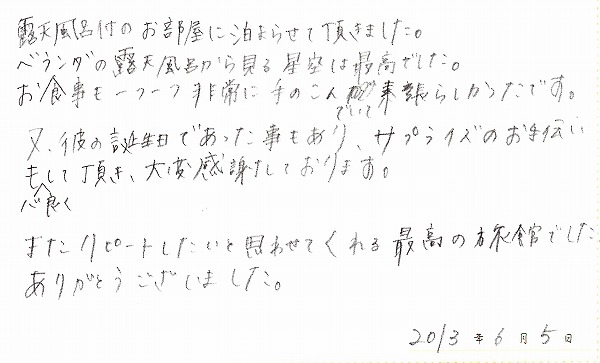 露天風呂付のお部屋に泊まらせて頂きました。
ベランダの露天風呂から見る星空は最高でした。
お食事も一つ一つ非常に手のこんでいて素晴らしかったです。
又、彼の誕生日であった事もあり、サプライズのお手伝い
も心良くして頂き、大変感謝しております。
またリピートしたいと思わせてくれる最高の旅館でした
ありがとうございました。
2013年6月5日